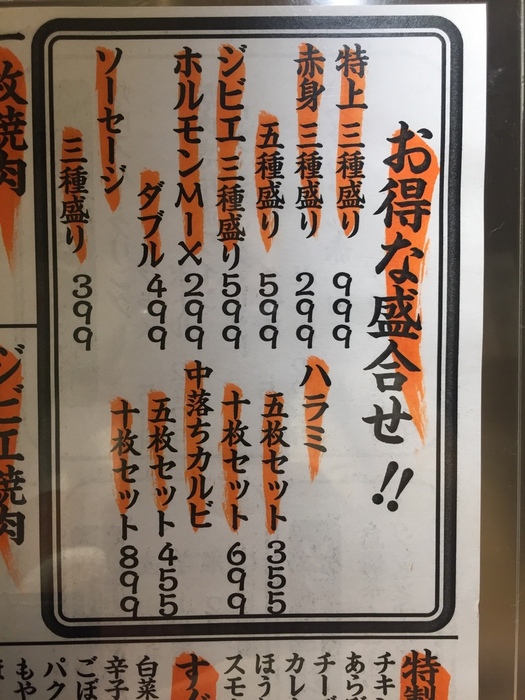 お得な盛合せ!!
特上 三種盛り 999
赤身 三種盛り 299
五種盛り 599
ジビエ 三種盛り 599
ホルモンMIX 299
ダブル 499
ソーセージ
三種盛り 399
ハラミ
五枚セット 355
十枚セット 699
中落ちカルビ
五枚セット 455
十枚セット 899
一枚焼肉
ジビエ焼肉
チキ
あらび
チーズ
カレ
ほう
スモ
白菜
辛子
ごぼ
パク
もや